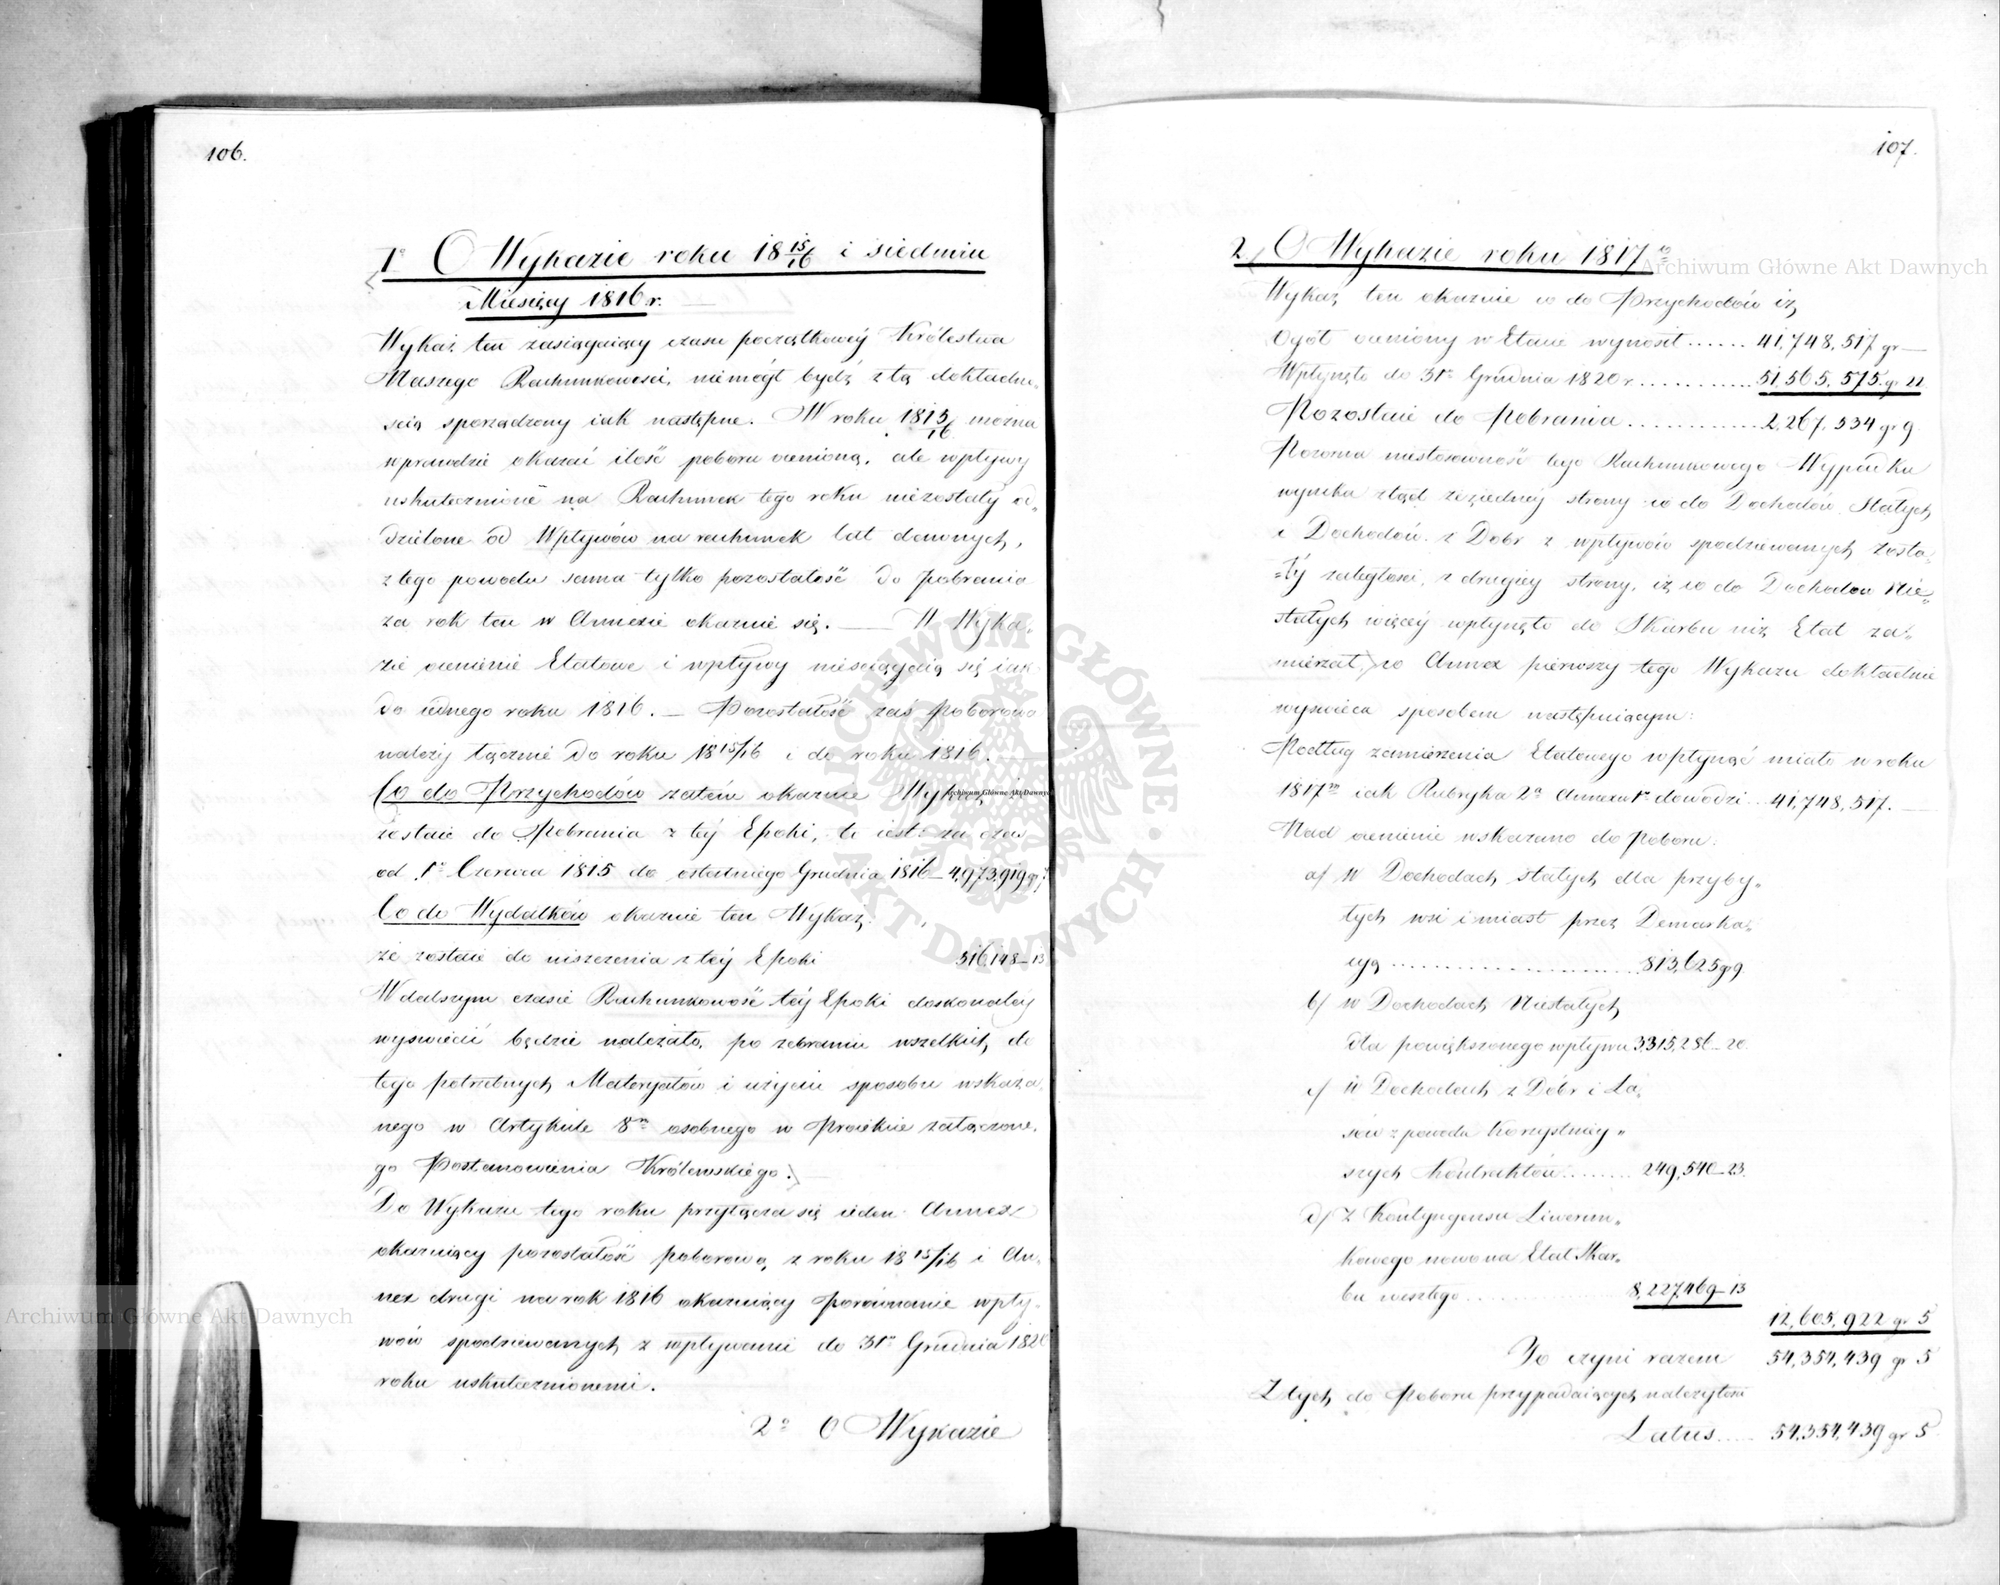 106.
1° O Wykazie roku 18 15/16 i siedmiu
Miesięcy 1816 r.
Wykaz ten zasiągaiący czasu początkowey Królestwa
Naszego Rachunkowości, niemógł bydź z tą dokładno„
ścią sporządzony iak następne. W roku 18 15/16 można
wprawdzie okazać ilość poboru ocenioną, ale wpływy
uskutecznione na Rachunek tego roku niezostały od„
dzielone od Wpływów na rachunek lat dawnych,
z tego powodu sama tylko pozostałość do pobrania
za rok ten w Annexie okazuie się. — W Wyka„
zie ocenienie Etatowe i wpływy nieściągaią się iak
do iednego roku 1816. — Pozostałość zaś Poborowa
należy łącznie do roku 18 15/16 i do roku 1816. —
Co do Przychodów zatém okazuie Wykaz iż
zostaie do Pobrania z téy Epoki, to iest: za czas
od 1° Czerwca 1815 do ostatniego Grudnia 1816 – 4,973,919 gr 7
Co do Wydatków okazuie ten Wykaz:
że zostaie do uiszczenia z téy Epoki 516,148–13
W dalszym czasie Rachunkowość téy Epoki doskonaléy
wyświecić będzie należało, po zebraniu wszelkich do
tego potrzebnych Materyałów i użyciu sposobu wskaza„
nego w Artykule 8m osobnego w Proiekcie załączone„
go Postanowienia Królewskiego. —
Do Wykazu tego roku przyłącza się ieden Annex
okazuiący pozostałość poborową z roku 18 15/16 i An„
nex drugi na rok 1816 okazuiący porównanie wpły„
wów spodziewanych z wpływami do 31° Grudnia 1820
roku uskutecznionemi.
2° O Wykazie
107.
2. O Wykazie roku 1817go
Wykaz ten okazuie co do Przychodów iż
Ogół oceniony w Etacie wynosił ...... 41,748,517 gr —
Wpłynęło do 31° Grudnia 1820 r. ........... 51,565,575. gr 22
Pozostaie do Pobrania ............ 2,267,534 gr 9
Pozorna niestosowność tego Rachunkowego Wypadku
wynika ztąd że z iedney strony co do Dochodów Stałych
i Dochodów z Dobr z wpływów spodziewanych zosta„
ły zaległości, z drugiey strony, iż co do Dochodów Nie„
stałych więcéy wpłynęło do Skarbu niż Etat za„
mierzał, co Annex pierwszy tego Wykazu dokładnie
wyświeca sposobem następuiącym:
Podług zamierzenia Etatowego wpłynąć miało w roku
1817m iak Rubryka 2a Annexu 1° dowodzi .. 41,748,517. —
Nad ocenienie wskazano do Poboru:
a/ w Dochodach stałych dla przyby„
łych wsi i miast przez Demarka„
cyą ........................ 813,625 gr 9
b/ w Dochodach Niestałych
dla powiększonego wpływu 3,315,286–20.
c/ w Dochodach z Dóbr i La„
sów z powodu korzystniey„
szych Kontraktów ........ 249,540–23.
d/ z Kontyngensu Liwerun„
kowego nowo na Etat Skar„
bu weszłego ............ 8,227,469–13
12,605,922 gr 5
To czyni razem 54,354,439 gr 5
Z tych do Poboru przypadaiących należytości
Latus .... 54,354,439 gr 5
Archiwum Główne Akt Dawnych
Archiwum Główne Akt Dawnych
Archiwum Główne Akt Dawnych
ARCHIWUM GŁÓWNE AKT DAWNYCH